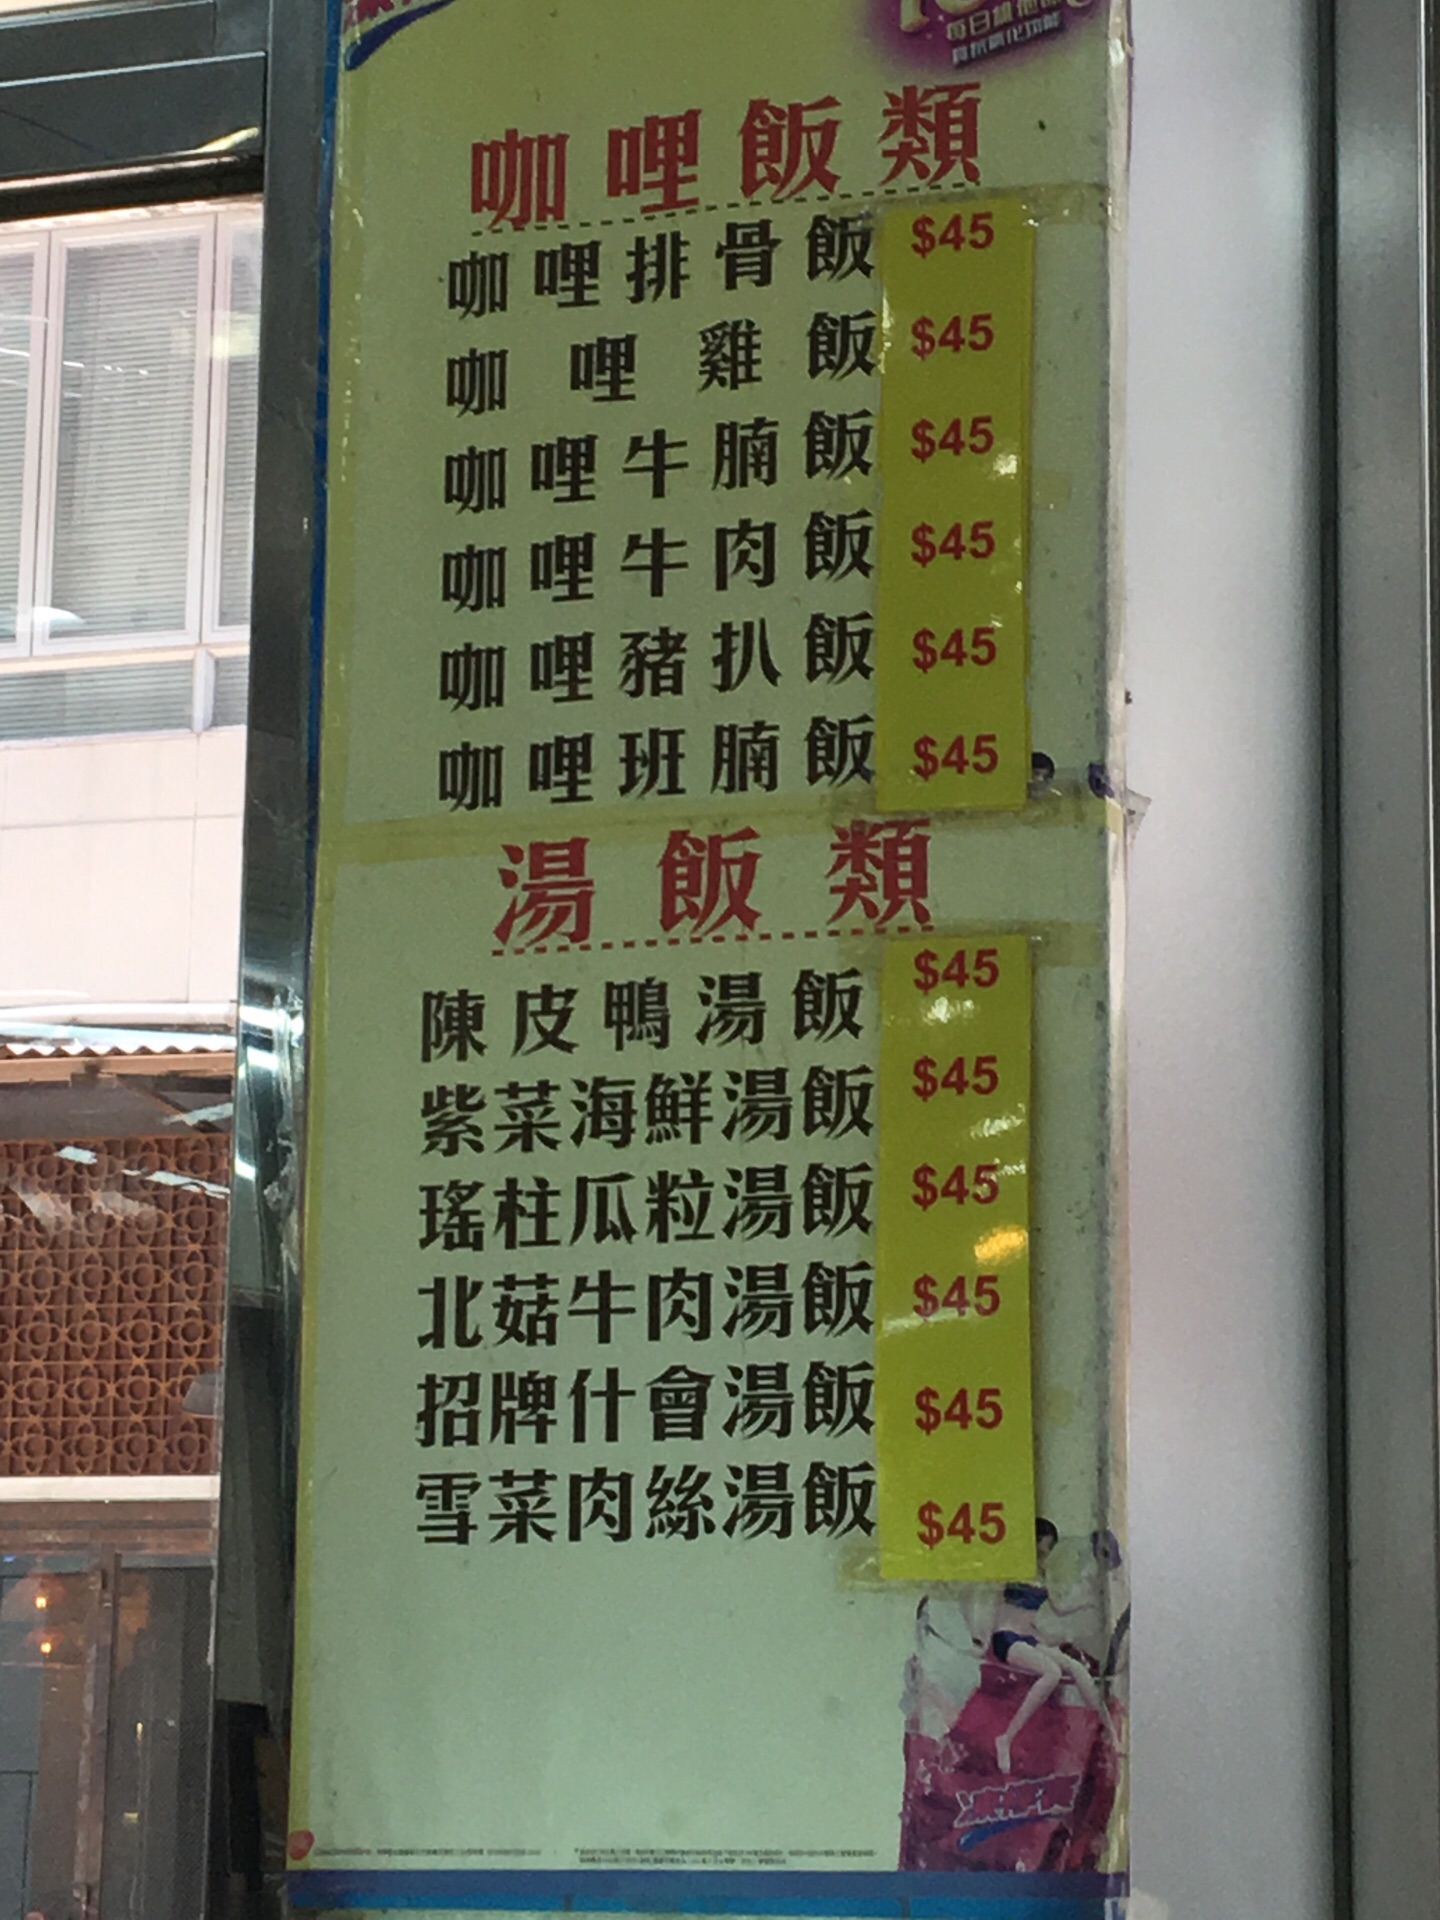 每日維他命C
具抗氧化功能
咖哩飯類
咖哩排骨飯 $45
咖哩雞飯 $45
咖哩牛腩飯 $45
咖哩牛肉飯 $45
咖哩豬扒飯 $45
咖哩班腩飯 $45
湯飯類
陳皮鴨湯飯 $45
紫菜海鮮湯飯 $45
瑤柱瓜粒湯飯 $45
北菇牛肉湯飯 $45
招牌什會湯飯 $45
雪菜肉絲湯飯 $45